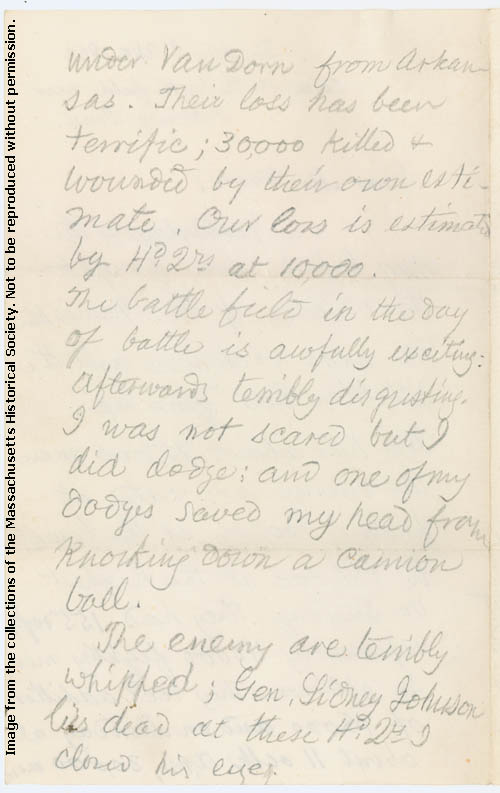 under Van Dorn from Arkan
sas. Their loss has been
terrific; 30,000 killed &
wounded by their own esti-
mate. Our loss is estimated
by Hd. Qrs at 10,000.
The battle field in the day
of battle is awfully exciting:
afterwards terribly disgusting.
I was not scared but I
did dodge: and one of my
dodges saved my head from
knocking down a cannon
ball.
The enemy are terribly
whipped; Gen. Sidney Johnson
lies dead at these Hd. Qrs. I
closed his eyes.
Image from the collections of the Massachusetts Historical Society. Not to be reproduced without permission.